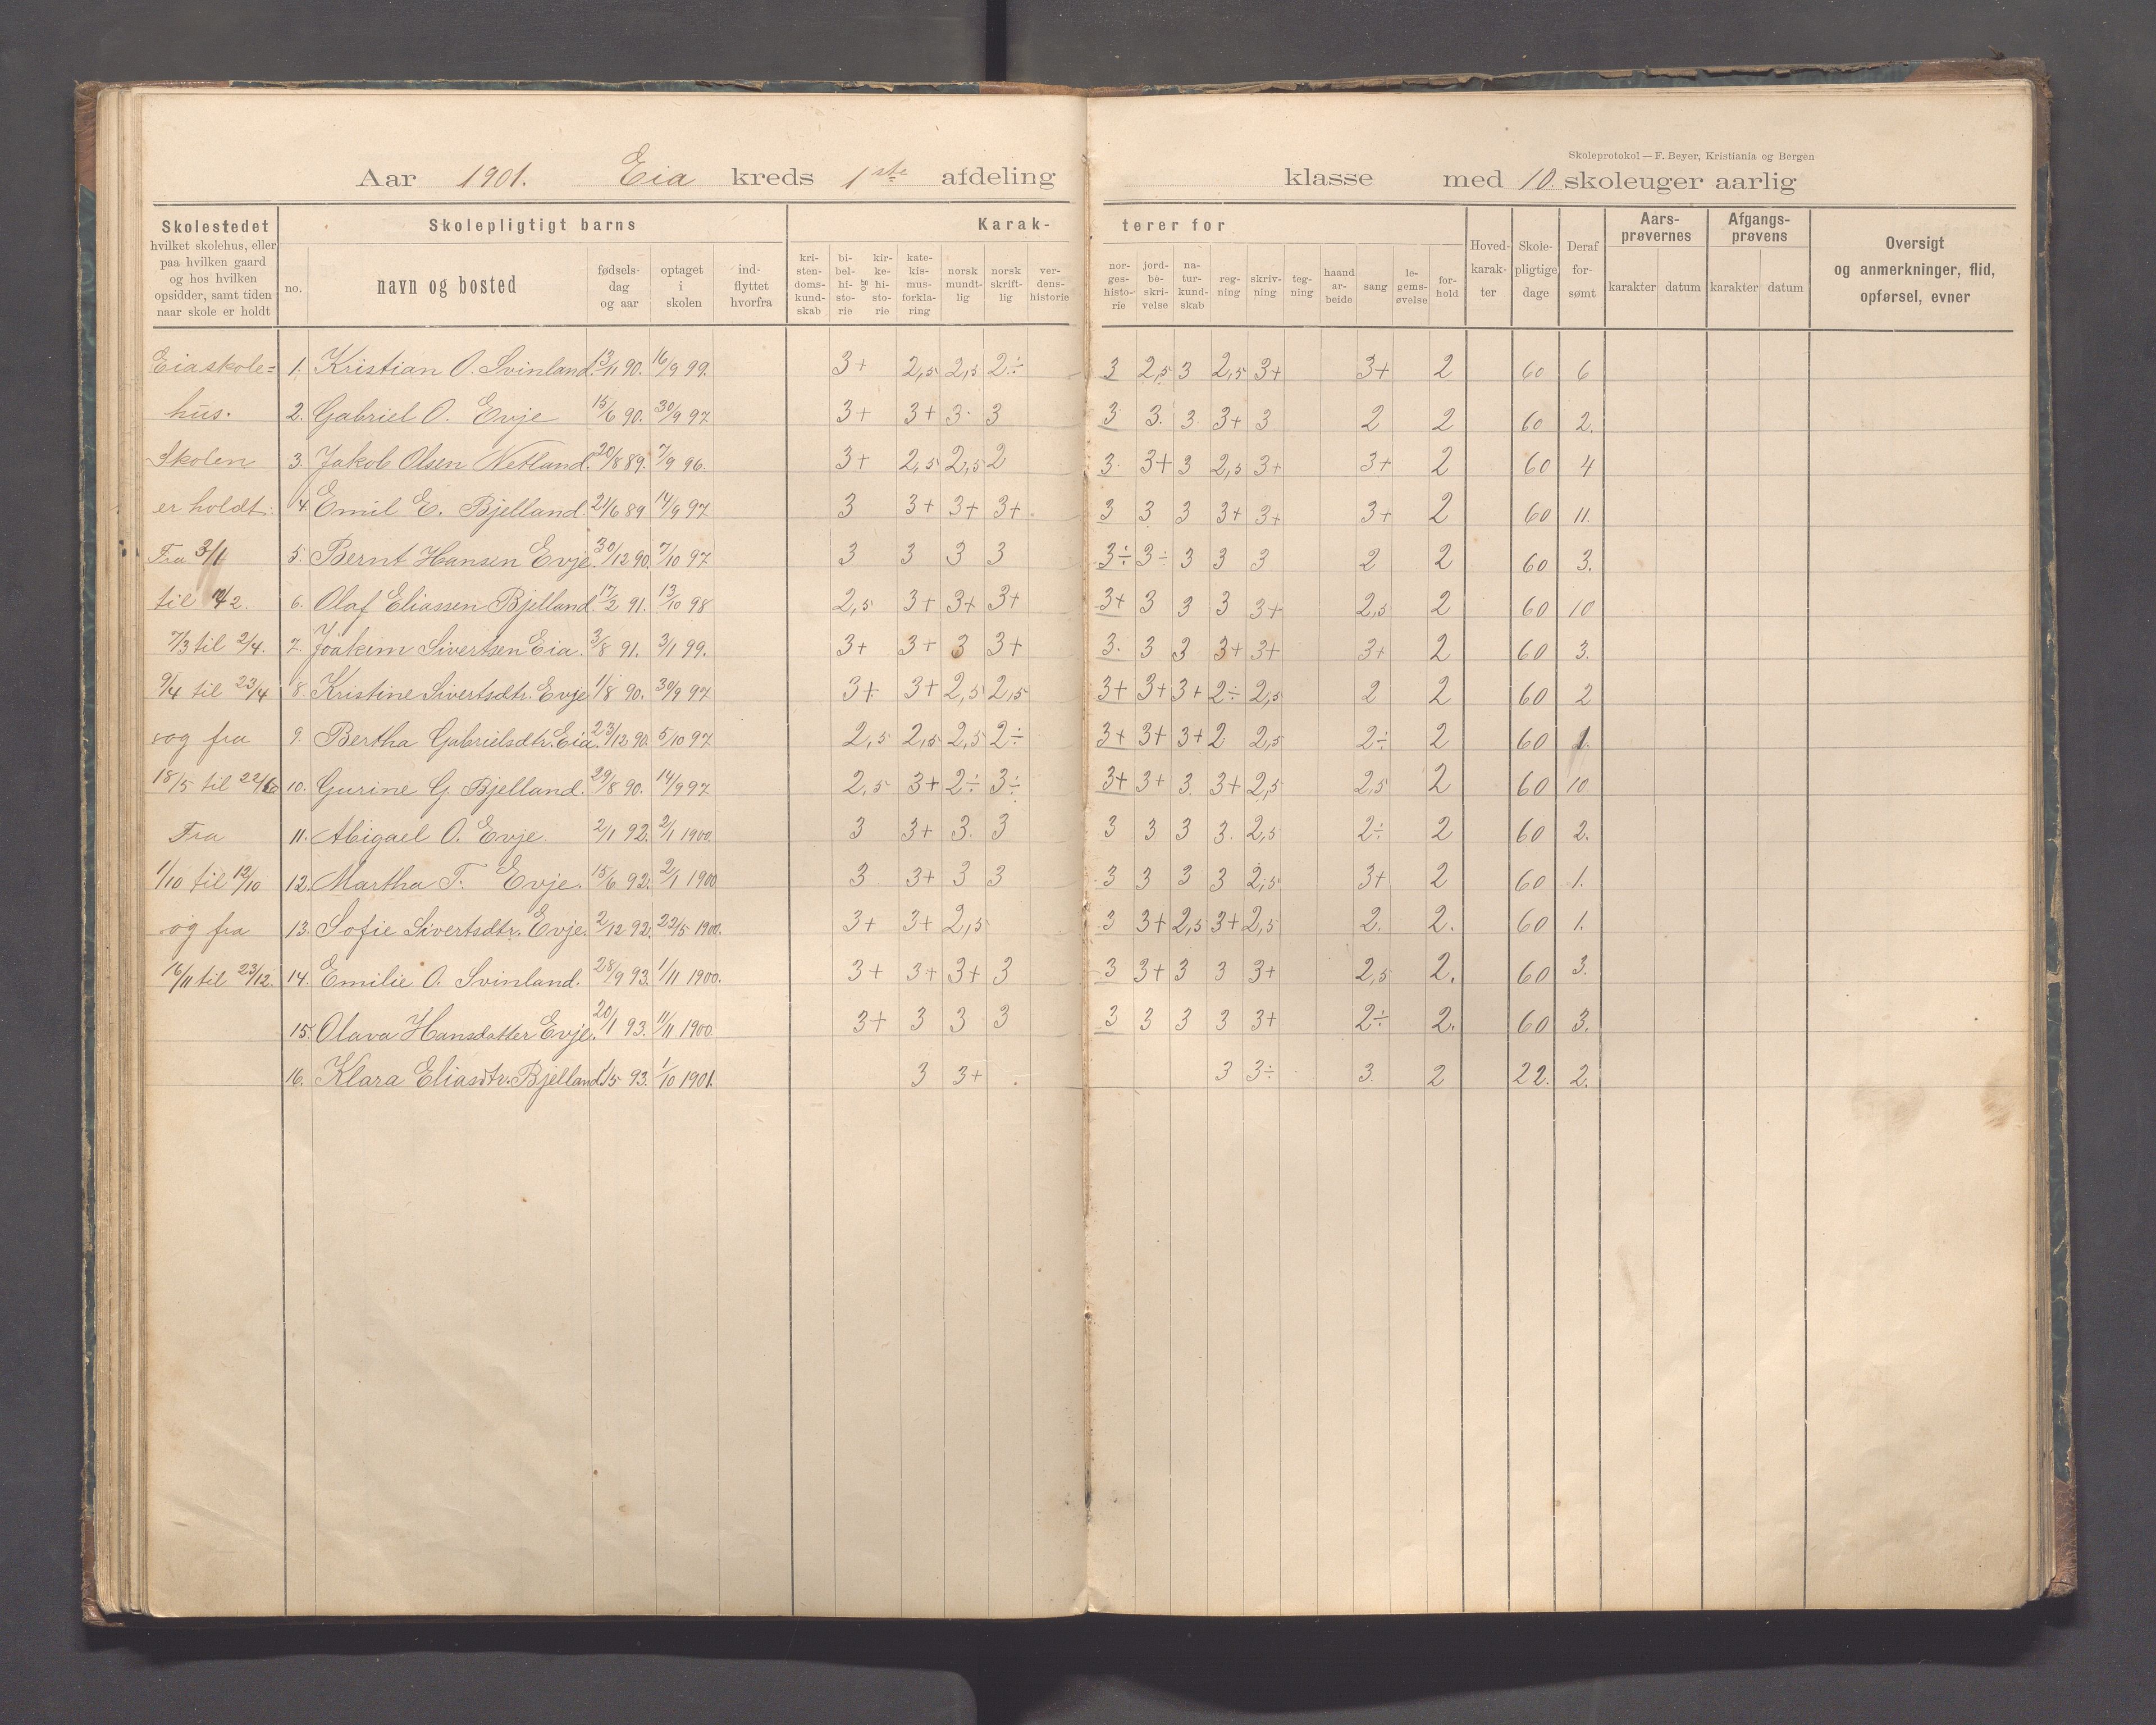 Skoleprotokol — F. Beyer, Kristiania og Bergen
Aar 1901. Eia kreds 1ste afdeling klasse med 10. skoleuger aarlig
Skolestedet
hvilket skolehus, eller
paa hvilken gaard
og hos hvilken
opsidder, samt tiden
naar skole er holdt
Skolepligtigt barns
no. navn og bosted
fødsels-
dag
og aar
optaget
i
skolen
ind-
flyttet
hvorfra
Karak-
kri-
sten-
doms-
kund-
skab
bi-
bel-
hi-
sto-
rie
og
kir-
ke-
hi-
sto-
rie
kate-
kis-
mus-
forkla-
ring
norsk
mundt-
lig
norsk
skrift-
lig
ver-
dens-
historie
terer for
nor-
ges-
histo-
rie
jord-
be-
skri-
velse
na-
tur-
kund-
skab
reg-
ning
skriv-
ning
teg-
ning
haand
ar-
beide
sang
le-
gems-
øvelse
for-
hold
Hoved-
karak-
ter
Skole-
pligtige
dage
Deraf
for-
sømt
Aars-
prøvernes
karakter datum
Afgangs-
prøvens
karakter datum
Oversigt
og anmerkninger, flid,
opførsel, evner
Eiaskole= 1. Kristian O. Svinland. 13/11 90. 16/9 99. 3+ 2,5 2,5 2÷ 3 2,5 3 2,5 3+ 3+ 2 60 6
hus. 2. Gabriel O. Evje 15/6 90. 30/9 97 3+ 3+ 3. 3 3 3. 3 3+ 3 2 2 60 2.
Skolen 3. Jakob Olsen Netland. 20/8 89. 7/9 96. 3+ 2,5 2,5 2 3. 3+ 3 2,5 3+ 3+ 2 60 4
er holdt: 4. Emil E. Bjelland 21/6 89 14/9 97 3 3+ 3+ 3+. 3 3 3 3+ 3+ 3+ 2 60 11.
Fra 3/1 5. Bernt Hansen Evje. 30/12 90. 7/10 97 3 3 3 3 3÷ 3÷ 3 3 3 2 2 60 3.
til /2. 6. Olaf Eliassen Bjelland. 17/2 91. 13/10 98 2,5 3+ 3+ 3+ 3+ 3 3 3 3+ 2,5 2 60 10
7/3 til 2/4. 7. Joakim Sivertsen Eia. 3/8 91. 3/1 99. 3+ 3+ 3 3+ 3. 3 3 3+ 3+ 3+ 2 60 3.
9/4 til 23/4 8. Kristine Sivertsdtr. Evje 1/8 90. 30/9 97 3+ 3+ 2,5 2,5 3+ 3+ 3+ 2÷ 2,5 2 2 60 2
og fra 9. Bertha Gabrielsdtr. Eia. 23/12 90. 5/10 97 2,5 2,5 2,5 2÷ 3+ 3+ 3+ 2 2,5 2÷ 2 60 1.
18/5 til 22/6 10. Gurine G. Bjelland. 29/8 90. 14/9 97 2,5 3+ 2÷ 3÷ 3+ 3+ 3. 3+ 2,5 2,5 2 60 10
Fra 11. Abigael O. Evje. 2/1 92. 2/1 1900. 3 3+ 3. 3 3 3 3 3. 2,5 2÷ 2 60 2.
1/10 til 12/10 12. Martha T. Evje. 15/6 92. 2/1 1900 3 3+ 3 3 3 3 3 3 2,5 3+ 2 60 1.
og fra 13. Sofie Sivertsdtr. Evje. 2/12 92. 22/5 1900. 3+ 3+ 2,5 3 3+ 2,5 3+ 2,5 2. 2. 60 1.
16/11 til 23/12. 14. Emilie O. Svinland. 28/9 93. 1/11 1900. 3+ 3+ 3+ 3 3 3+ 3 3 3+ 2,5 2. 60 3.
15. Olava Hansdatter Evje. 20/1 93. 11/11 1900. 3+ 3 3 3 3 3 3 3 3+ 2÷ 2. 60 3.
16. Klara Eliasdtr. Bjelland. 1/5 93. 1/10 1901. 3 3+ . 3 3÷ 3. 2 22. 2.